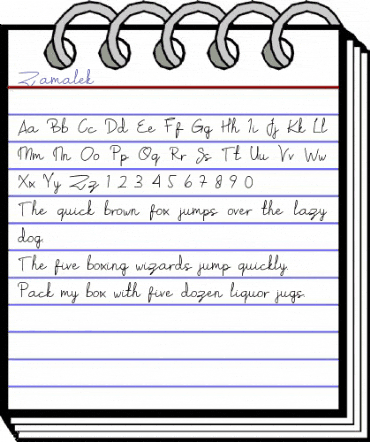 Zamalek
Aa Bb Cc Dd Ee Ff Gg Hh Ii Jj Kk Ll
Mm Nn Oo Pp Qq Rr Ss Tt Uu Vv Ww
Xx Yy Zz 1 2 3 4 5 6 7 8 9 0
The quick brown fox jumps over the lazy
dog.
The five boxing wizards jump quickly.
Pack my box with five dozen liquor jugs.